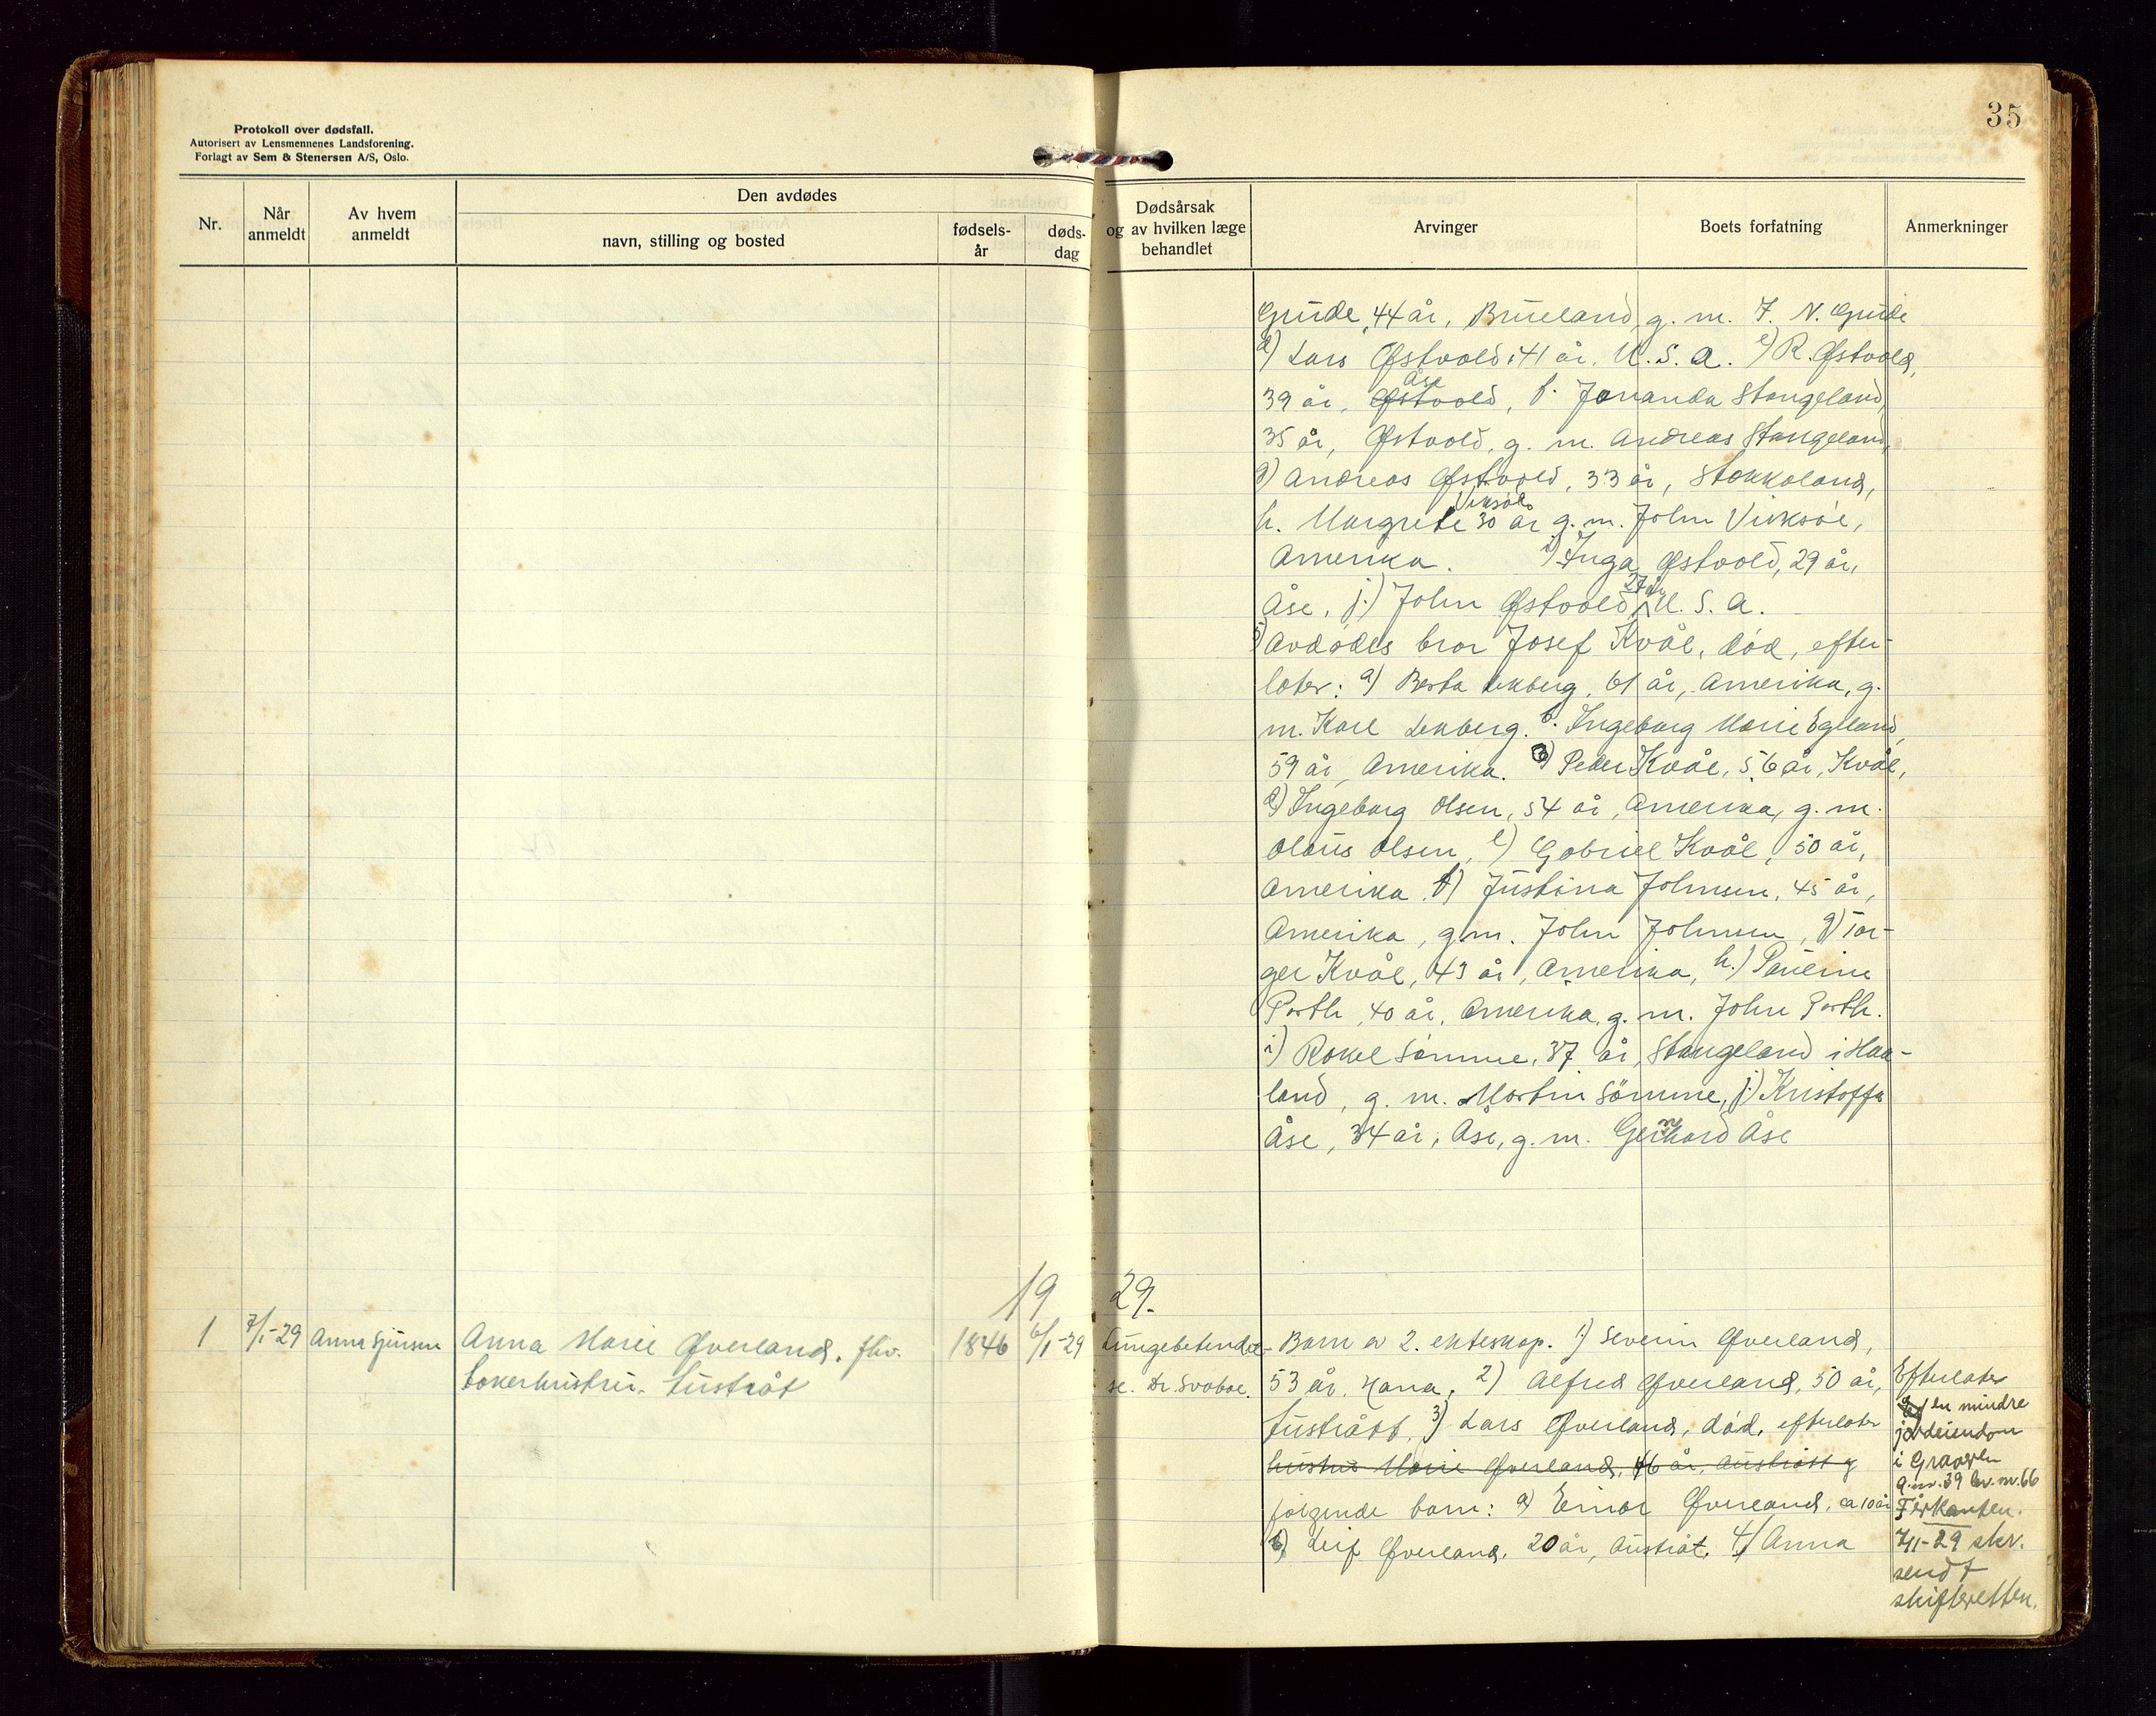 35
Protokoll over dødsfall.
Autorisert av Lensmennenes Landsforening.
Forlagt av Sem & Stenersen A/S, Oslo.
Nr.
Når anmeldt
Av hvem anmeldt
Den avdødes
navn, stilling og bosted
fødsels-år
døds-dag
Dødsårsak og av hvilken læge behandlet
Arvinger
Boets forfatning
Anmerkninger
Gude, 44 år, Brueland, g. m. F. N. Gude
d) Lars Østvold, 41 år, U.S.A. e) R. Østvold,
39 år, Østvold Åse, f. Jonanda Stangeland,
35 år, Østvold, g. m. Andreas Stangeland,
g) Andreas Østvold, 33 år, Stokkaland,
h. Margrete 30 år g. m. John
Amerika. i) Inga Østvold, 29 år,
Åse, j.) John Østvold, 27 år U.S.A.
Avdødes bror Josef Kvål, død, efter-
later: a) Berta Lekberg, 61 år, Amerika, g.
m. Karl Lekberg. b. Ingeborg Marie Egeland,
59 år, Amerika. Peder Kvål, 56 år, Kvål,
d) Ingeborg Olsen, 54 år, Amerika, g. m.
Olaus Olsen, e) Gabriel Kvål, 50 år,
Amerika f) Justina Johnsen, 45 år,
Amerika, g.m. John Johnsen, g) Tor-
ger Kvål, 43 år, Amerika, h.) Pauline
Parth, 40 år, Amerika, g. m. John Parth.
i) Rakel Sømme, 37 år, Stangeland i Haa-
land, g. m. Martin Sömme, j) Kristoffa
Åse, 34 år, Åse, g. m. Gerhard Åse
1929.
1
7/1-29
Anna
Anna Marie Øverland, fhv.
bakerhustru. Austråt
1846
6/1-29
Lungebetendel-
se. Dr. Svaboe.
Barn av 2. ekteskap. 1) Severin Øverland,
53 år, Hana, 2) Alfred Øverland, 50 år,
Austrått, 3) Lars Øverland, død, efterlater
hustru Marie Øverland, 46 år, Austrått og
følgende barn: a) Einar Øverland, ca 10 år
b) Leif Øverland, 20 år, Austråt. 4) Anna
Efterlater
en mindre
jordeiendom
i Gravarlen
g.nr. 39 br.nr. 66
Firkanten.
7/1-29 skr.
sendt
skifteretten.